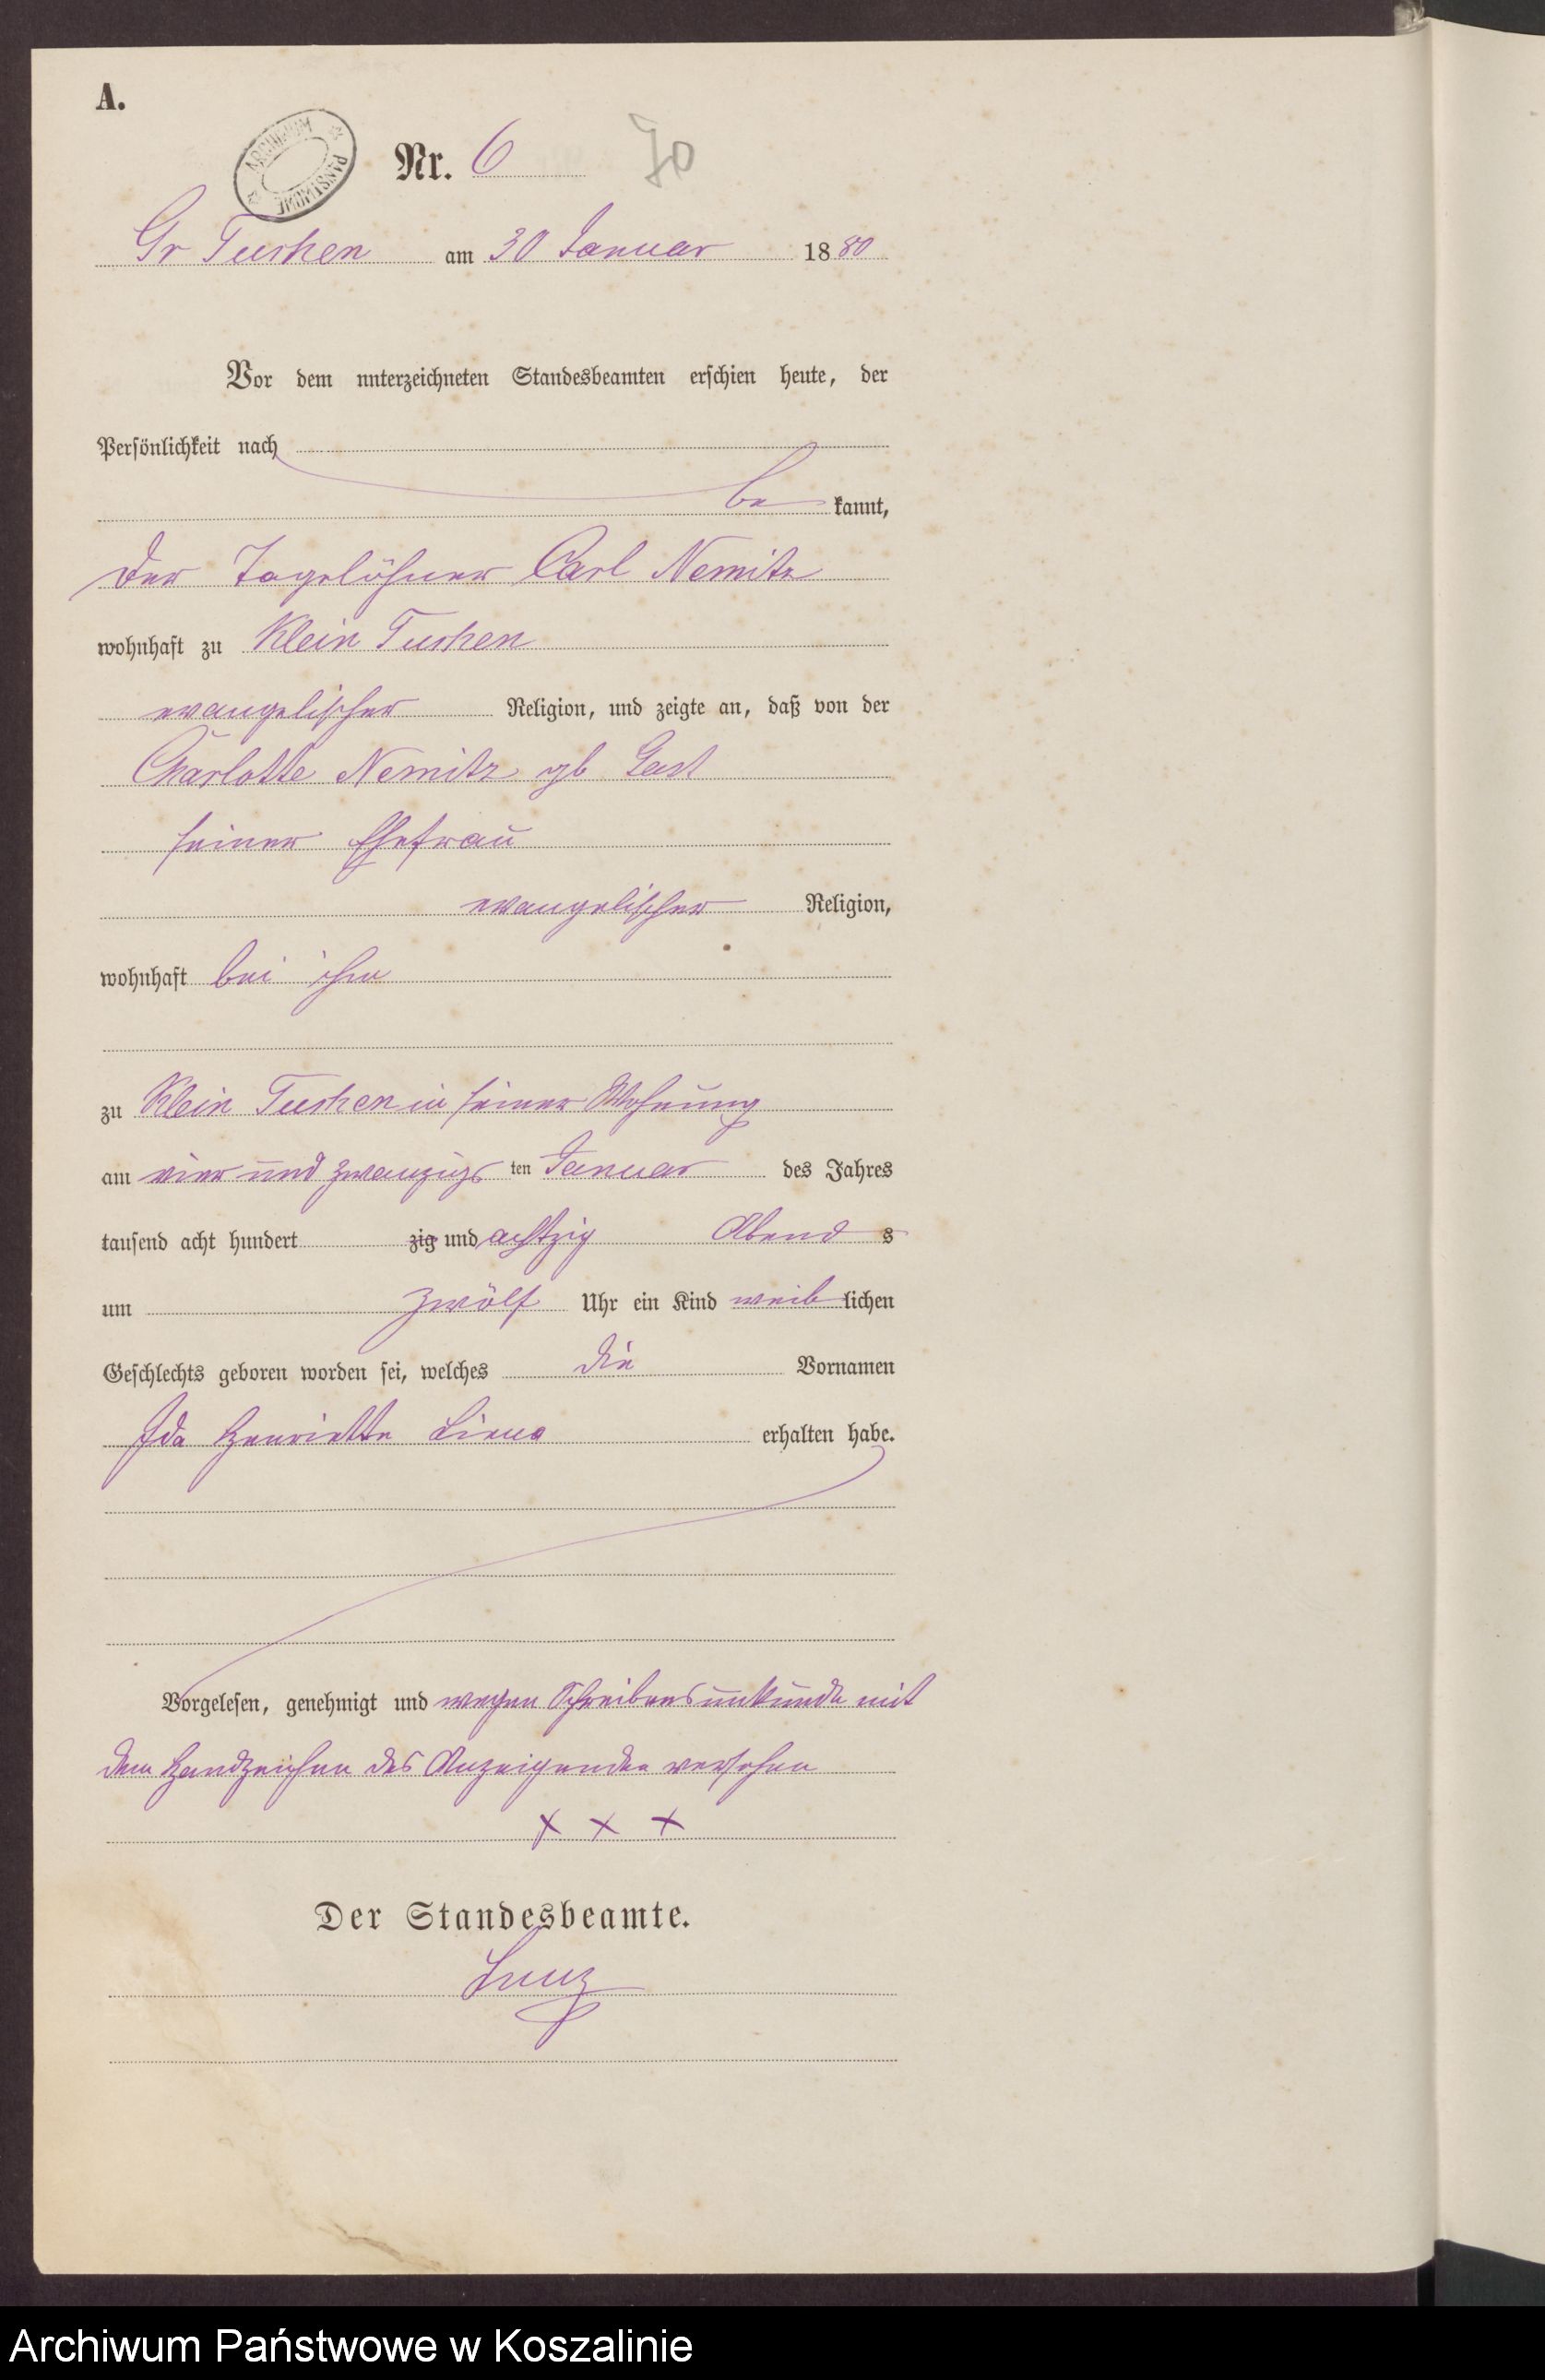 A.
ARCHIWUM PAŃSTWOWE
Nr. 6 70
Gr Tuchen am 30 Januar 1880
Vor dem unterzeichneten Standesbeamten erschien heute, der
Persönlichkeit nach
be kannt,
der Tagelöhner Carl Nemitz
wohnhaft zu Klein Tuchen
evangelischer Religion, und zeigte an, daß von der
Charlotte Nemitz gb Gast
seiner Ehefrau
evangelischer Religion,
wohnhaft bei ihm
zu Klein Tuchen in seiner Wohnung
am vier und zwanzigs ten Januar des Jahres
tausend acht hundert zig und achtzig Abend s
um zwölf Uhr ein Kind weib lichen
Geschlechts geboren worden sei, welches die Vornamen
Ida Henriette erhalten habe.
Vorgelesen, genehmigt und wegen Schreibensunkunde mit
dem Handzeichen des Anzeigenden versehen
x x x
Der Standesbeamte.
Archiwum Państwowe w Koszalinie